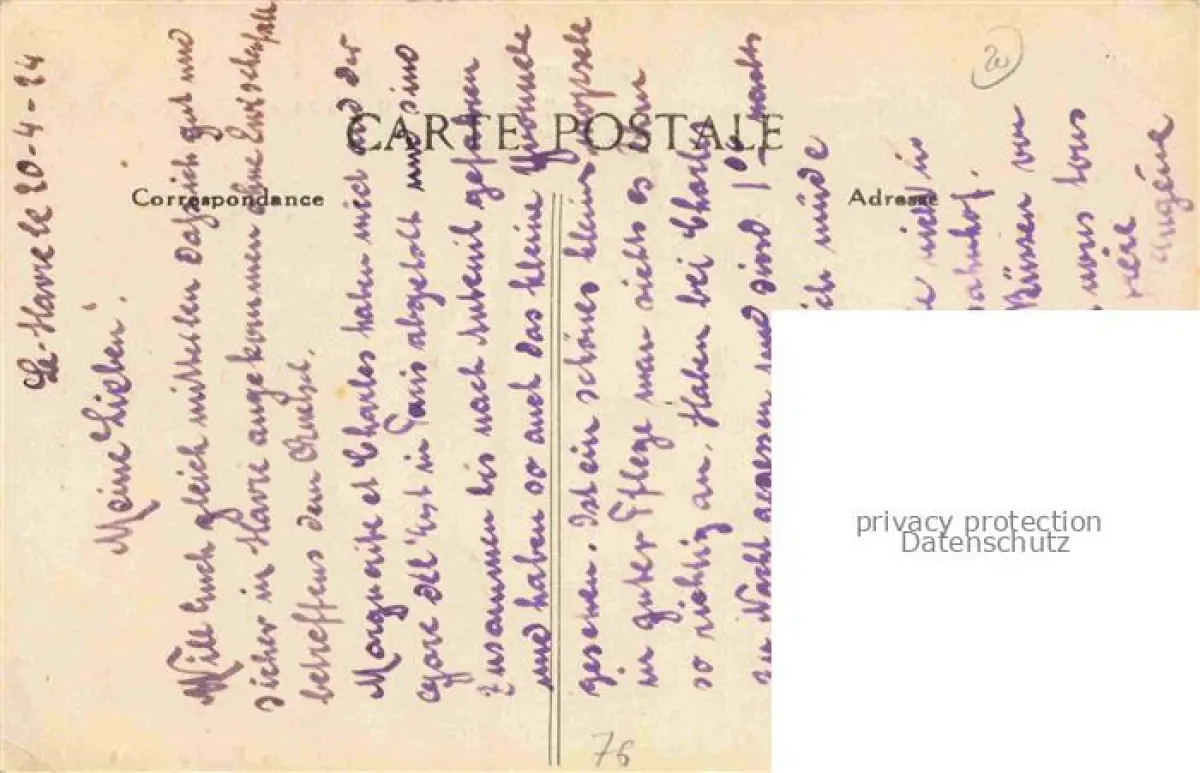 CARTE POSTALE
Correspondance
Adresse
Le-Havre le 20-4-24
Meine Lieben!
Will Euch gleich mitteilen daß ich gut und
sicher in Havre angekommen ohne Zwischenfall
betreffens dem
Marguerite et Charles haben mich and der
Gare de l'Est in Paris abgeholt und sind
zusammen bis nach gefahren
und haben so auch das kleine Yvonnele
gesehen. Ist ein schönes kleines
in guter Pflege man siehts es ihm
so richtig an. Haben bei Charles
zu Nacht gegessen und sind 1 nachts
ich müde
nicht in
Bahnhof.
Küssen von
nous tous
Eugène
privacy protection
Datenschutz
20
76